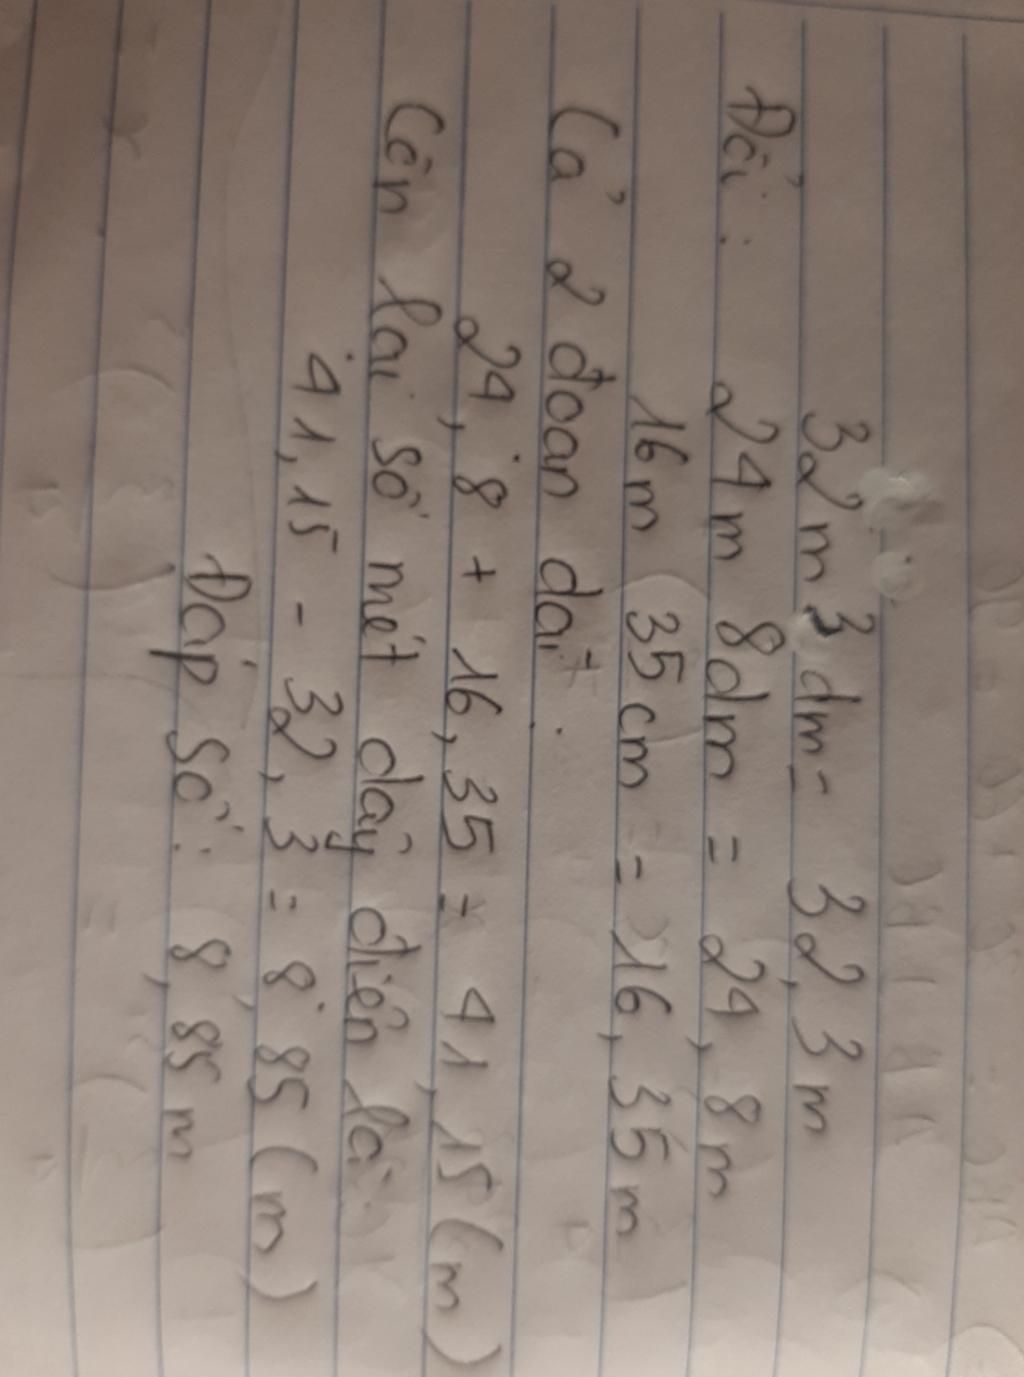 32m 3dm = 32,3m
Đổi: 24m 8dm = 24,8m
16m 35cm = 16,35m
Cả 2 đoạn dài:
24,8 + 16,35 = 41,15 (m)
Còn lại số mét dây điện là:
41,15 - 32,3 = 8,85 (m)
Đáp số: 8,85m